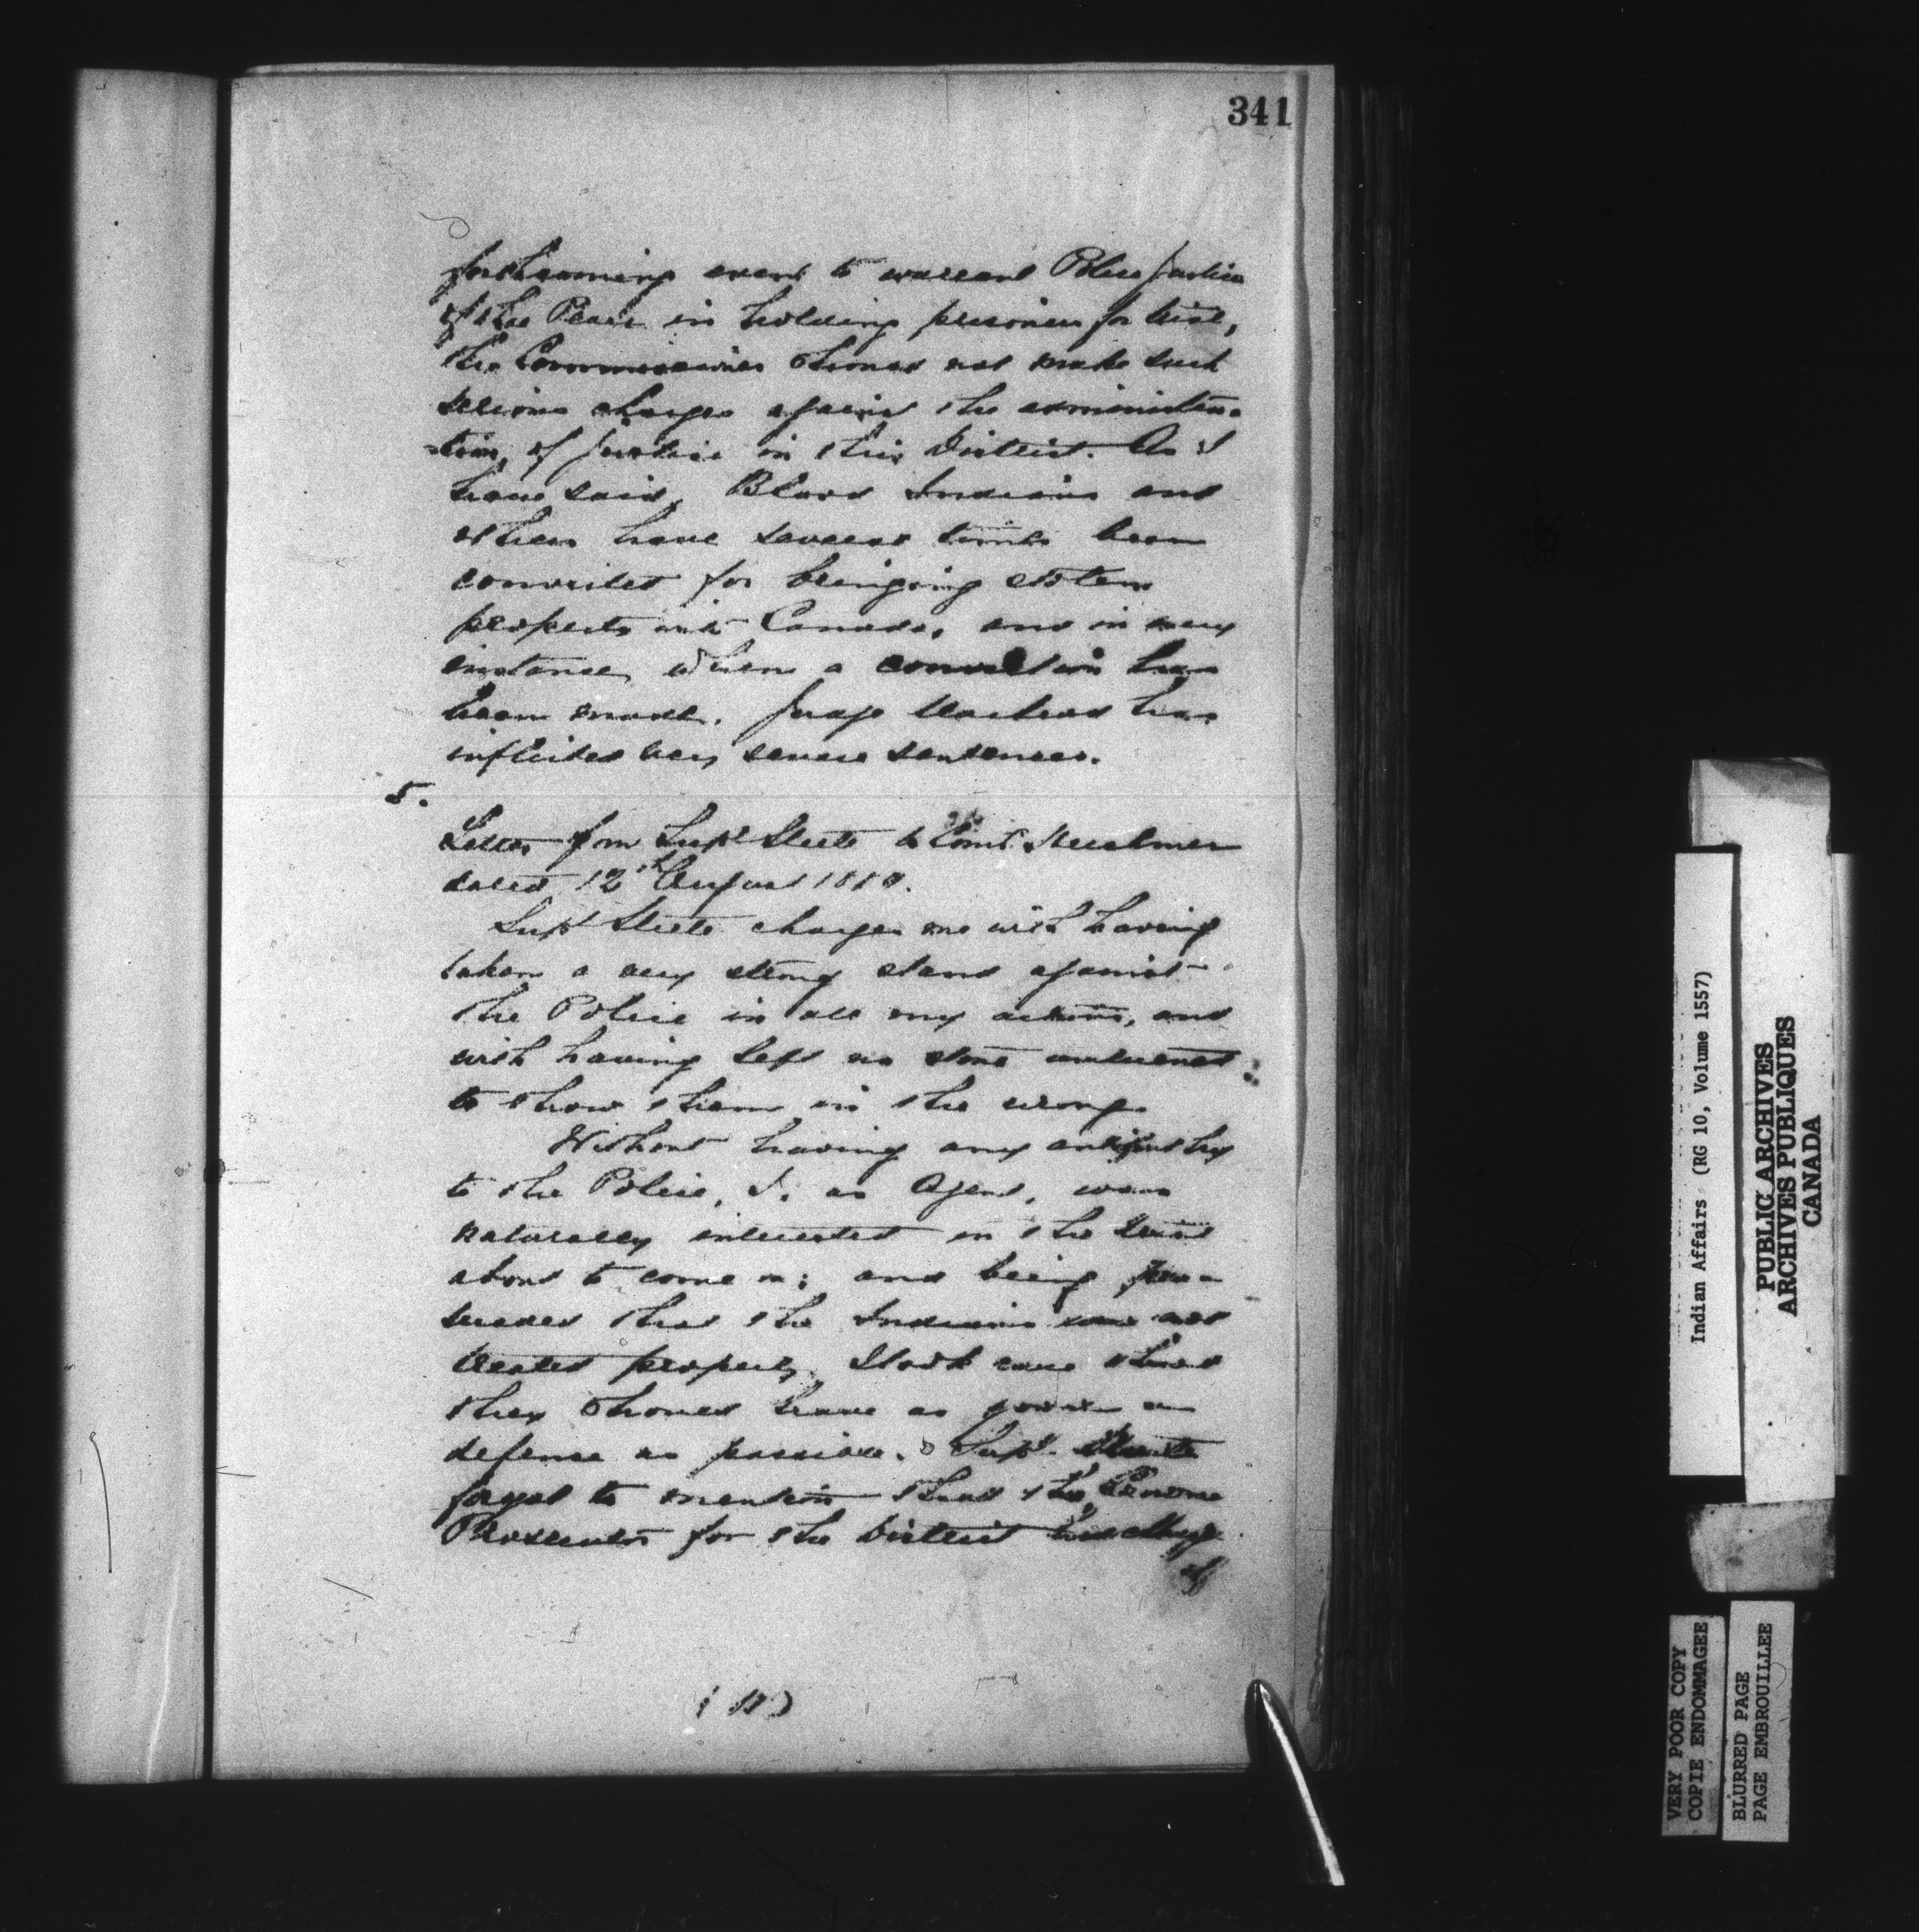 341
forthcoming even to warrant Police Justices
of the Peace in holding prisoners for trial,
the Commissioner should not make such
serious charges against the administra-
-tion, of justice in this District. As I
have said, Blood Indians and
others have several times been
convicted for bringing stolen
property into Canada, and in every
instance where a conviction has
been made, Judge Macleod has
inflicted very severe sentences.
5.
Letter from Supt Steele to Comr. Herchmer
dated 12th August 18
Supt Steele charges me with having
taken a very strong stand against
the Police in all my actions, and
with having left no stone unturned
to show them in the wrong.
Without having any antipathy
to the Police, I, as Agent, was
naturally interested in the trial
about to come on; and being per-
suaded that the Indians were not
treated properly, I took care that
they should have as good a
defense as possible. Supt. Steele
forgot to mention that the Crown
Prosecutor for the District
of
(11)
Indian Affairs (RG 10, Volume 1557)
PUBLIC ARCHIVES
ARCHIVES PUBLIQUES
CANADA
VERY POOR COPY
COPIE ENDOMMAGEE
BLURRED PAGE
PAGE EMBROUILLEE